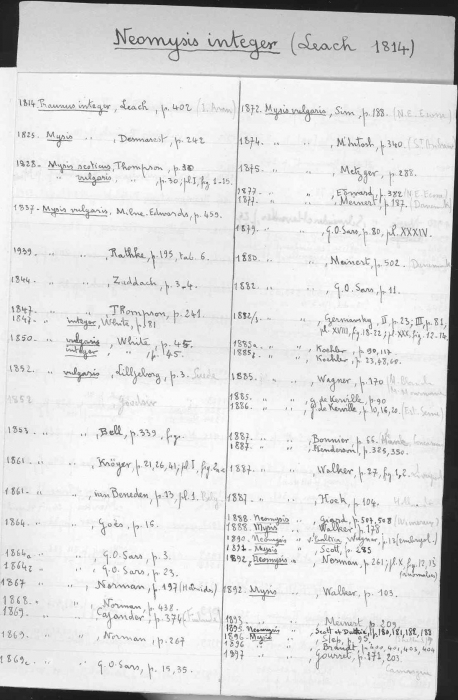 Neomysis integer (Leach 1814)
1814. Praunus integer, Leach, p. 402
1825. Mysis " " , Desmarest, p. 242
1828. Mysis scoticus, Thompson, p. 30
" vulgaris, " , p. 30, pl. I, fig. 1-15.
1837. Mysis vulgaris, Milne-Edwards, p. 459.
1939. " " , Rathke, p. 195, tab. 6.
1844. " " , Zaddach, p. 3-4.
1847. " " , Thompson, p. 241.
1847. " integer, White, p. 81
1850. " vulgaris, White, p. 45.
" integer " , p. 45.
1852. " vulgaris, Lilljeborg, p. 3. Suède
1853 " " , Bell, p. 339, fig.
1861. " " , Kröyer, p. 21, 26, 41, pl. I, fig.
1861. " " , van Beneden, p. 13, pl. 1.
1864. " " , Goës, p. 16.
1864a " " , G.O. Sars, p. 3.
1864c " " , G.O. Sars, p. 23.
1867 " " , Norman, p. 197
1868. " " , Norman, p. 438.
1869. " " , Cajander, p. 374
1869. " " , Norman, p. 267
1869c " " , G.O. Sars, p. 15, 35.
1872. Mysis vulgaris, Sim, p. 188.
1874. " " , M'Intosh, p. 340.
1875. " " , Metzger, p. 288.
1877. " " , p. 382
1877. " " , Meinert, p. 187.
1879. " " , G.O. Sars, p. 80, pl. XXXIV.
1880. " " , Meinert, p. 502.
1882. " " , G.O. Sars, p. 11.
1882/3. " " , Czerniavsky, II, p. 23; III, p. 81,
pl. XVIII, fig. 18-22; pl. XXX, fig. 12-14.
1885a. " " , Koehler, p. 90, 117
1885b. " " , Koehler, p. 23, 48, 60.
1885. " " , Wagner, p. 170
1885. " " , G. de Kerville, p. 90
1886. " " , G. de Kerville, p. 10, 16, 20.
1887. " " , Bonnier, p. 66.
1887. " " , Henderson, p. 325, 350.
1887. " " , Walker, p. 27, fig. 1, 2.
1887. " " , Hoek, p. 104.
1888. Neomysis " , Giard, p. 507, 508 (Wimereux)
1888. Mysis " , Walker, p. 178
1890. Neomysis " , Wagner, p. 12 (embryol.)
1891. Mysis " , Scott, p. 285
1892. Neomysis " , Norman, p. 261; pl. X, fig. 12, 13
1892. Mysis " , Walker, p. 103.
1893. " " , Meinert, p. 209.
1895. Neomysis " , Scott et Duthie, p. 180, 181, 182, 188
1896. Mysis " , p. 95.
1896. " " , Brandt, p. 400, 401, 403, 404
1897. " " , Gourret, p. 172, 203.